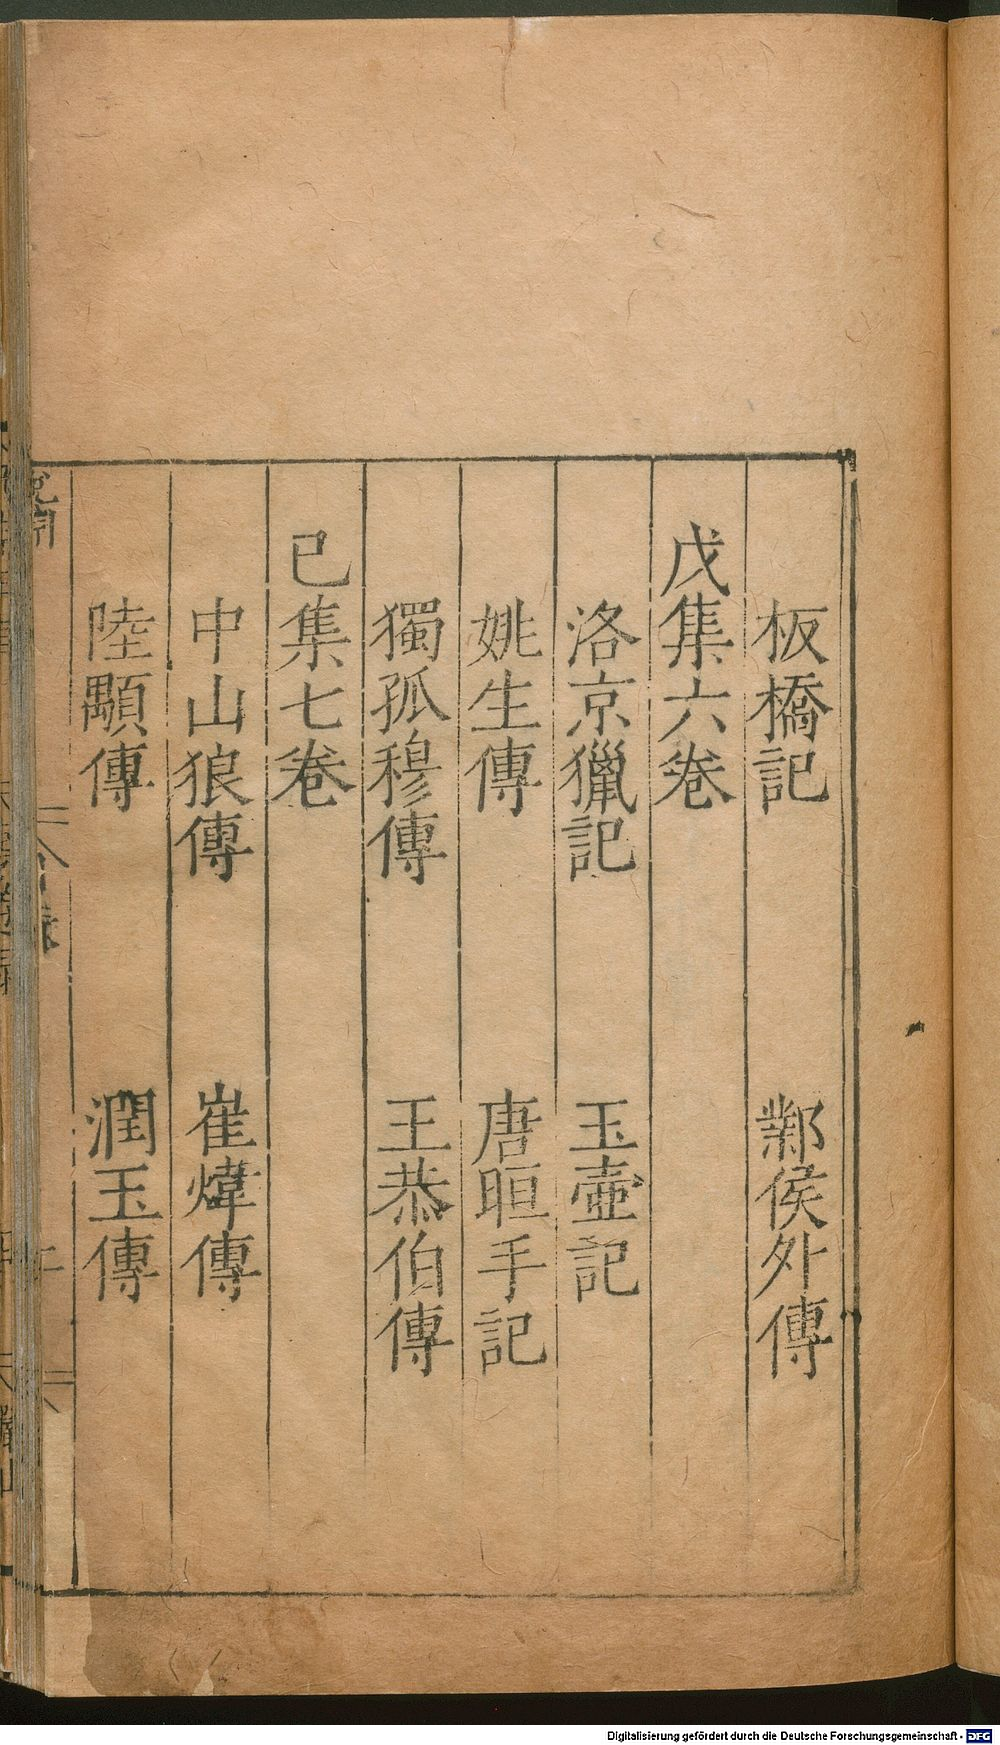 板橋記 鄴侯外傳
戊集六卷
洛京獵記 玉壺記
姚生傳 唐晅手記
獨孤穆傳 王恭伯傳
已集七卷
中山狼傳 崔煒傳
陸顒傳 潤玉傳
Digitalisierung gefördert durch die Deutsche Forschungsgemeinschaft - DFG